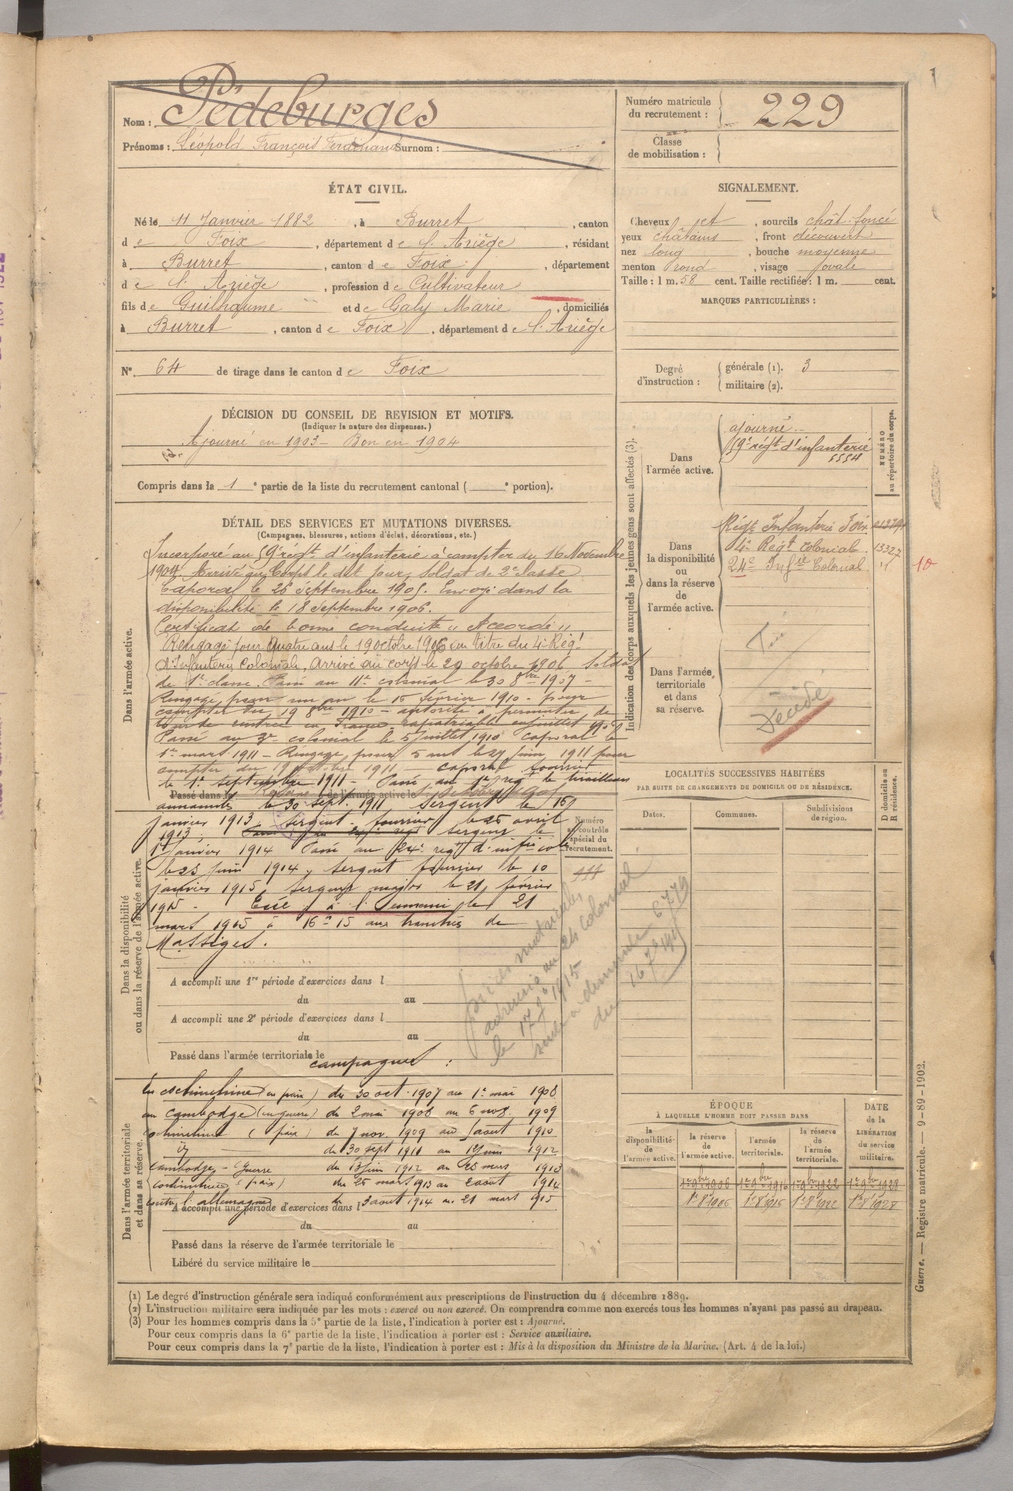 Nom : Pédeburges
Prénoms : Léopold François Ferdinand Surnom :
Numéro matricule du recrutement : 229
Classe de mobilisation :
ÉTAT CIVIL.
Né le 11 Janvier 1882, à Burret, canton
de Foix, département de l'Ariège, résidant
à Burret, canton de Foix, département
de l'Ariège, profession de Cultivateur
fils de Guilhaume et de Galy Marie, domiciliés
à Burret, canton de Foix, département de l'Ariège
N° 64 de tirage dans le canton de Foix
SIGNALEMENT.
Cheveux jet, sourcils chât. foncé
yeux châtains, front découvert
nez long, bouche moyenne
menton rond, visage ovale
Taille : 1 m. 58 cent. Taille rectifiée : 1 m. cent.
MARQUES PARTICULIÈRES :
Degré d'instruction : générale (1). 3
militaire (2).
DÉCISION DU CONSEIL DE REVISION ET MOTIFS.
(Indiquer la nature des dispenses.)
Ajourné en 1903 - Bon en 1904
Compris dans la 1e partie de la liste du recrutement cantonal ( e portion).
DÉTAIL DES SERVICES ET MUTATIONS DIVERSES.
(Campagnes, blessures, actions d'éclat, décorations, etc.)
Dans l'armée active.
Incorporé au 59e régt d'infanterie à compter du 16 Novembre
1904. Arrivé au Corps le dit jour, Soldat de 2e classe
Caporal le 28 Septembre 1905. Envoyé dans la
disponibilité le 18 Septembre 1906.
Certificat de bonne conduite "Accordé"
Rengagé pour quatre ans le 19 octobre 1906 au titre du 4e Régt
d'Infanterie Coloniale, arrivé au corps le 29 octobre 1906 Soldat
de 1e classe. Passé au 11e colonial le 30 8bre 1907 -
Rengagé pour un an le 15 février 1910 - pour
compter du 19 8bre 1910 - autorisé à permuter de
tour de rentrée en France, rapatriable en juillet
Passé au 3e colonial le 5 juillet 1910 caporal le
1er mars 1911 - Rengagé pour 5 ans le 27 juin 1911 pour
compter du 1911 - caporal fourrier
le 1er septembre 1911 - Passé au 1er régt de tirailleurs
Passé dans la réserve de l'armée active le
annamites le 30 sept. 1911 Sergent le 16
janvier 1913. Sergent-fourrier le 25 avril
1913. sergent le
1er janvier 1914 Passé au 24e regt d'infie cole
le 23 juin 1914, sergent fourrier le 10
janvier 1915, sergent major le 21 février
1915 - Tué à l'Ennemi le 21
mars 1915 à 16h 15 aux tranchées de
Massiges.
Dans la disponibilité ou dans la réserve de l'armée active.
Numéro au contrôle spécial du recrutement.
A accompli une 1re période d'exercices dans l
du au
A accompli une 2e période d'exercices dans l
du au
Passé dans l'armée territoriale le
campagnes :
Dans l'armée territoriale et dans sa réserve.
en cochinchine (en paix) du 30 oct. 1907 au 1er mai 1908
au cambodge (en guerre) du 2 mai 1908 au 6 nov. 1909
cochinchine (paix) du 7 nov. 1909 au août 1910
du 30 sept 1911 au juin 1912
Cambodge - Guerre du 13 juin 1912 au 25 mars 1913
cochinchine (paix) du 25 mars 1913 au 2 août 1914
contre l'allemagne du 3 août 1914 au 21 mars 1915
A accompli une période d'exercices dans l
du au
Passé dans la réserve de l'armée territoriale le
Libéré du service militaire le
pièces matricules
adressées au 24 colonial
le 17 1915
suite à demande 6779
du 16
Indication des corps auxquels les jeunes gens sont affectés (3).
NUMÉRO au répertoire du corps.
Dans l'armée active.
ajourné
59e régt d'infanterie 5554
Dans la disponibilité ou dans la réserve de l'armée active.
Régt Infanterie Foix
4e Régt Colonial
24e Infie Colonial
10
Dans l'armée territoriale et dans sa réserve.
Foix
Décédé
LOCALITÉS SUCCESSIVES HABITÉES
PAR SUITE DE CHANGEMENTS DE DOMICILE OU DE RÉSIDENCE.
Dates. Communes. Subdivisions de région. D domicile ou R résidence.
ÉPOQUE
À LAQUELLE L'HOMME DOIT PASSER DANS
DATE DE LA LIBÉRATION du service militaire.
la disponibilité de l'armée active. la réserve de l'armée active. l'armée territoriale. la réserve de l'armée territoriale.
(1) Le degré d'instruction générale sera indiqué conformément aux prescriptions de l'instruction du 4 décembre 1889.
(2) L'instruction militaire sera indiquée par les mots : exercé ou non exercé. On comprendra comme non exercés tous les hommes n'ayant pas passé au drapeau.
(3) Pour les hommes compris dans la 5e partie de la liste, l'indication à porter est : Ajourné.
Pour ceux compris dans la 6e partie de la liste, l'indication à porter est : Service auxiliaire.
Pour ceux compris dans la 7e partie de la liste, l'indication à porter est : Mis à la disposition du Ministre de la Marine. (Art. 4 de la loi.)
Guerre. — Registre matricule. — 9-89-1902.